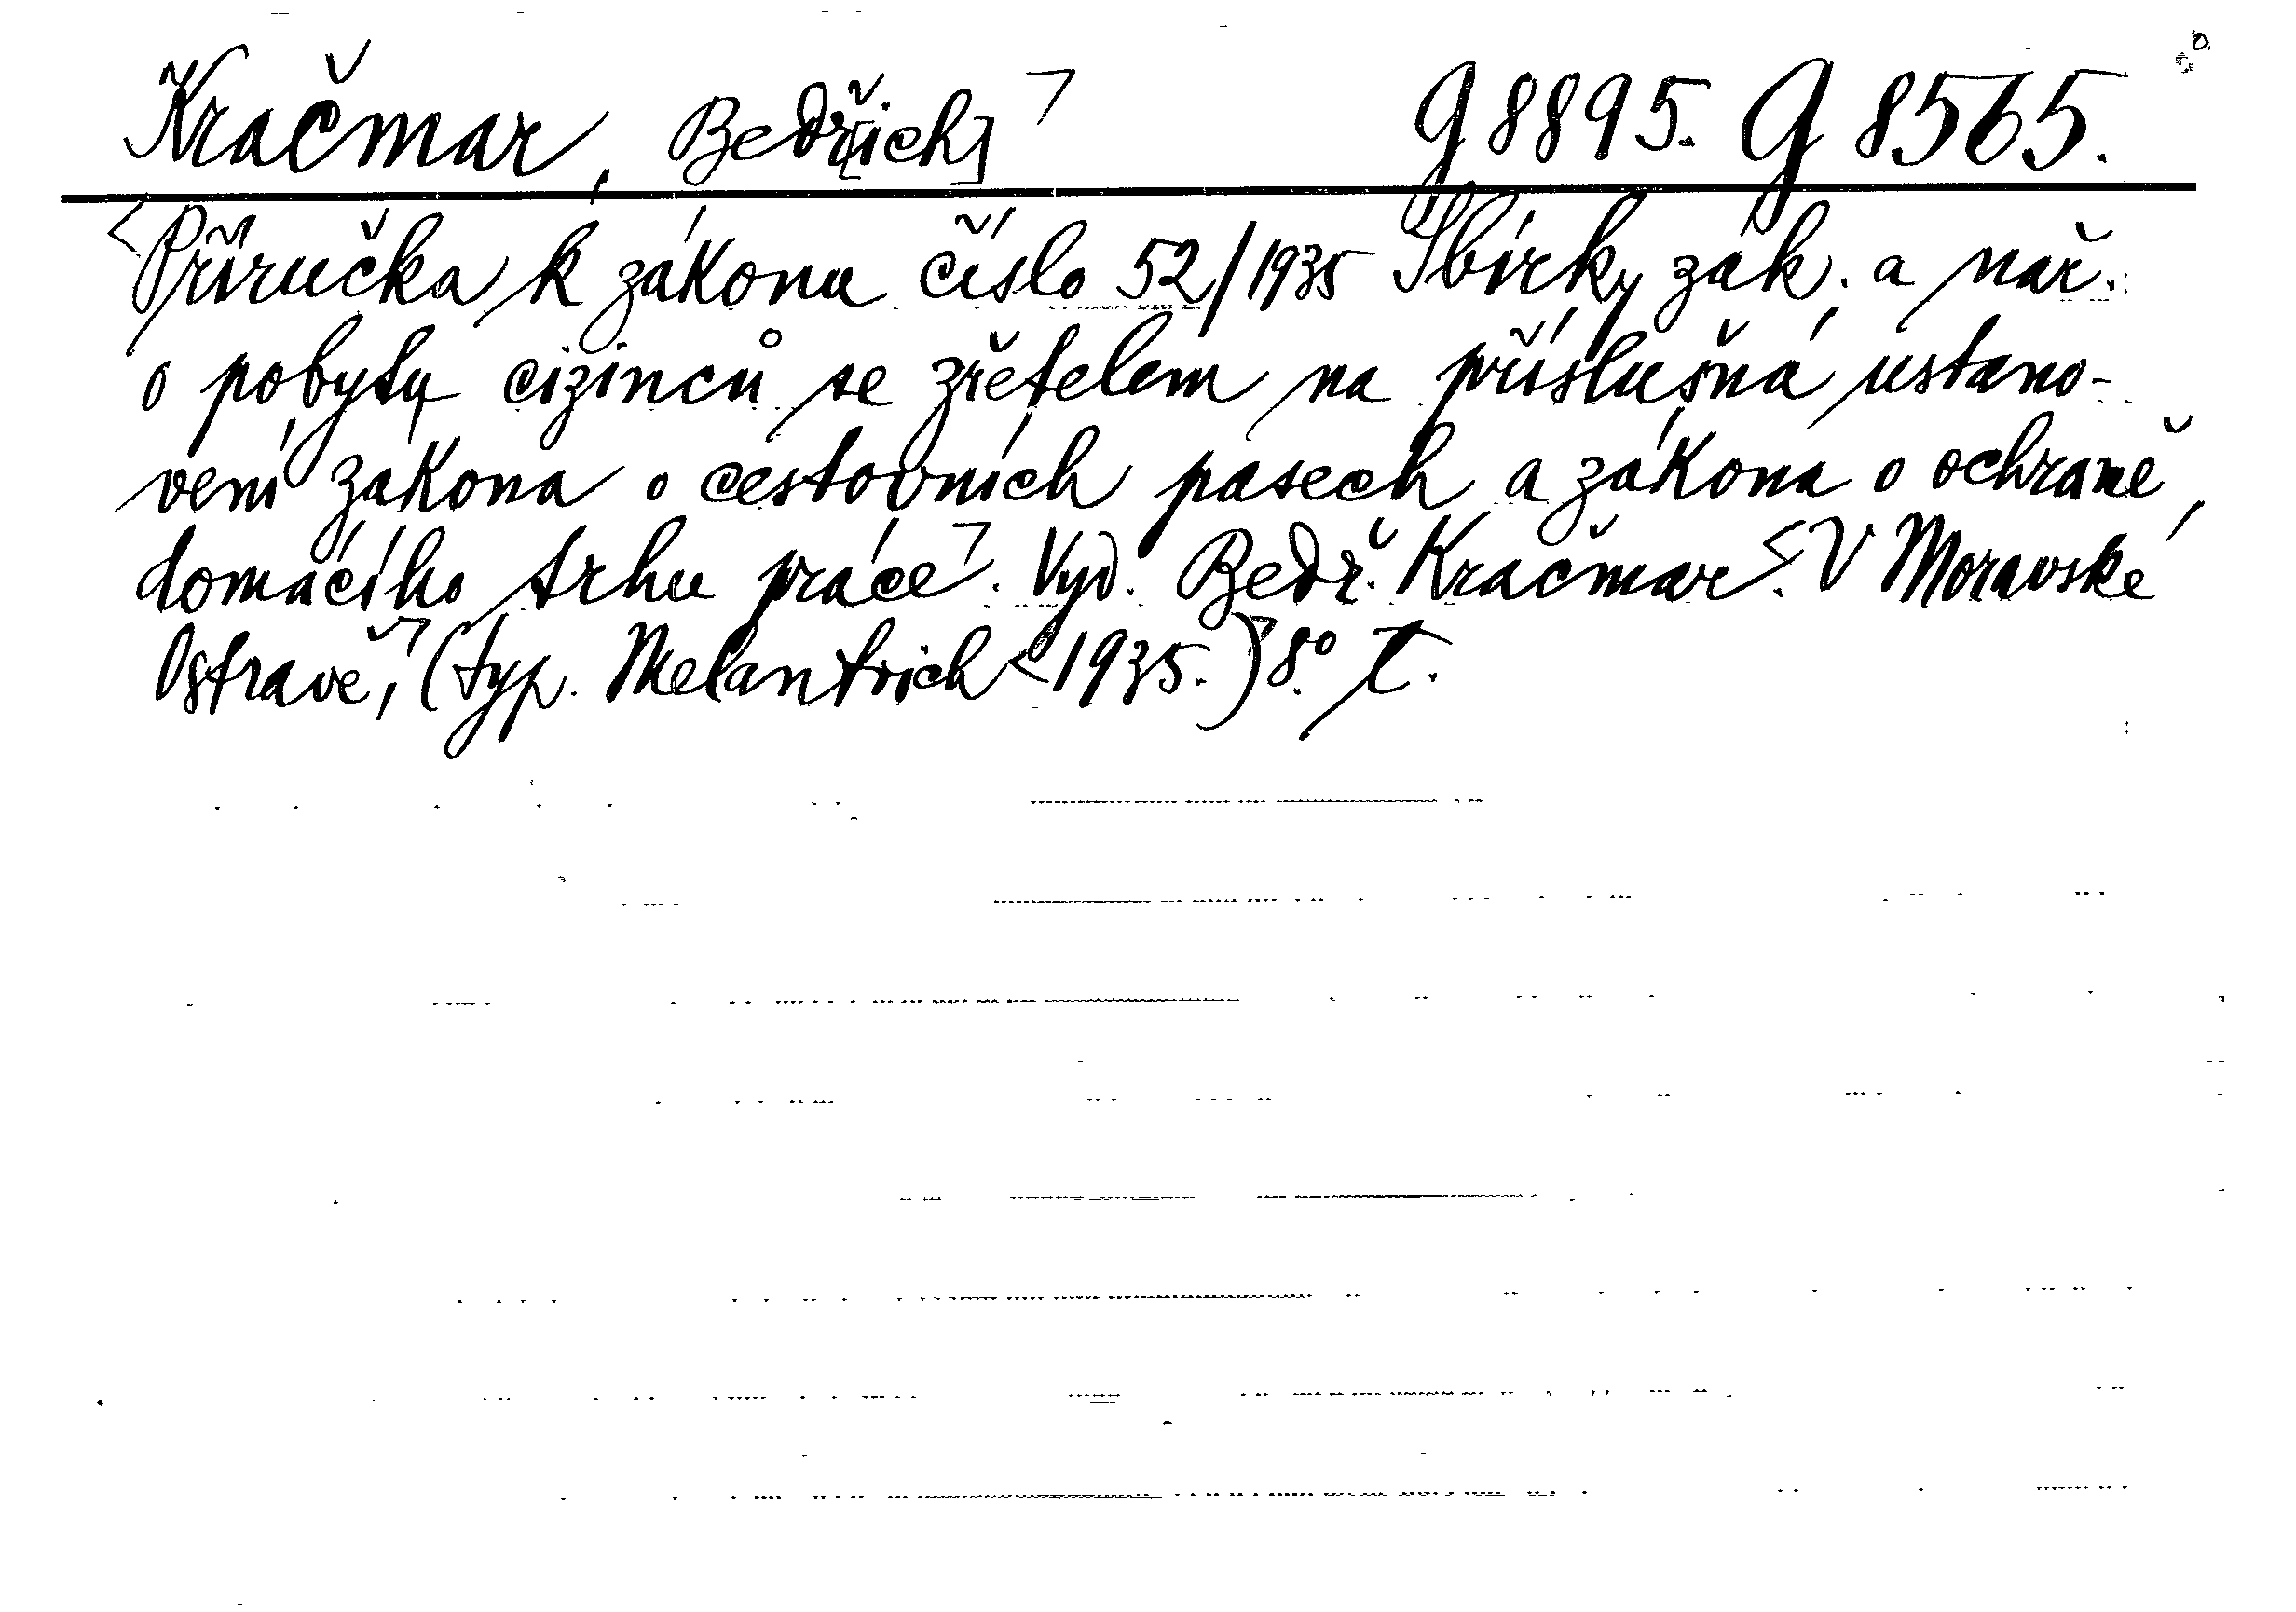 Kračmar, Bedř[ich] g 8895. G 8565.
Příručka k zákonu číslo 52/1935 Sbírky zák. a nař.
o pobytu cizinců se zřetelem na příslušná ustano-
vení zákona o cestovních pasech a zákona o ochraně
domácího trhu práce. Vyd. Bedř. Kračmar. V Moravské
Ostravě, (typ. Melantrich 1935.) 8° T.